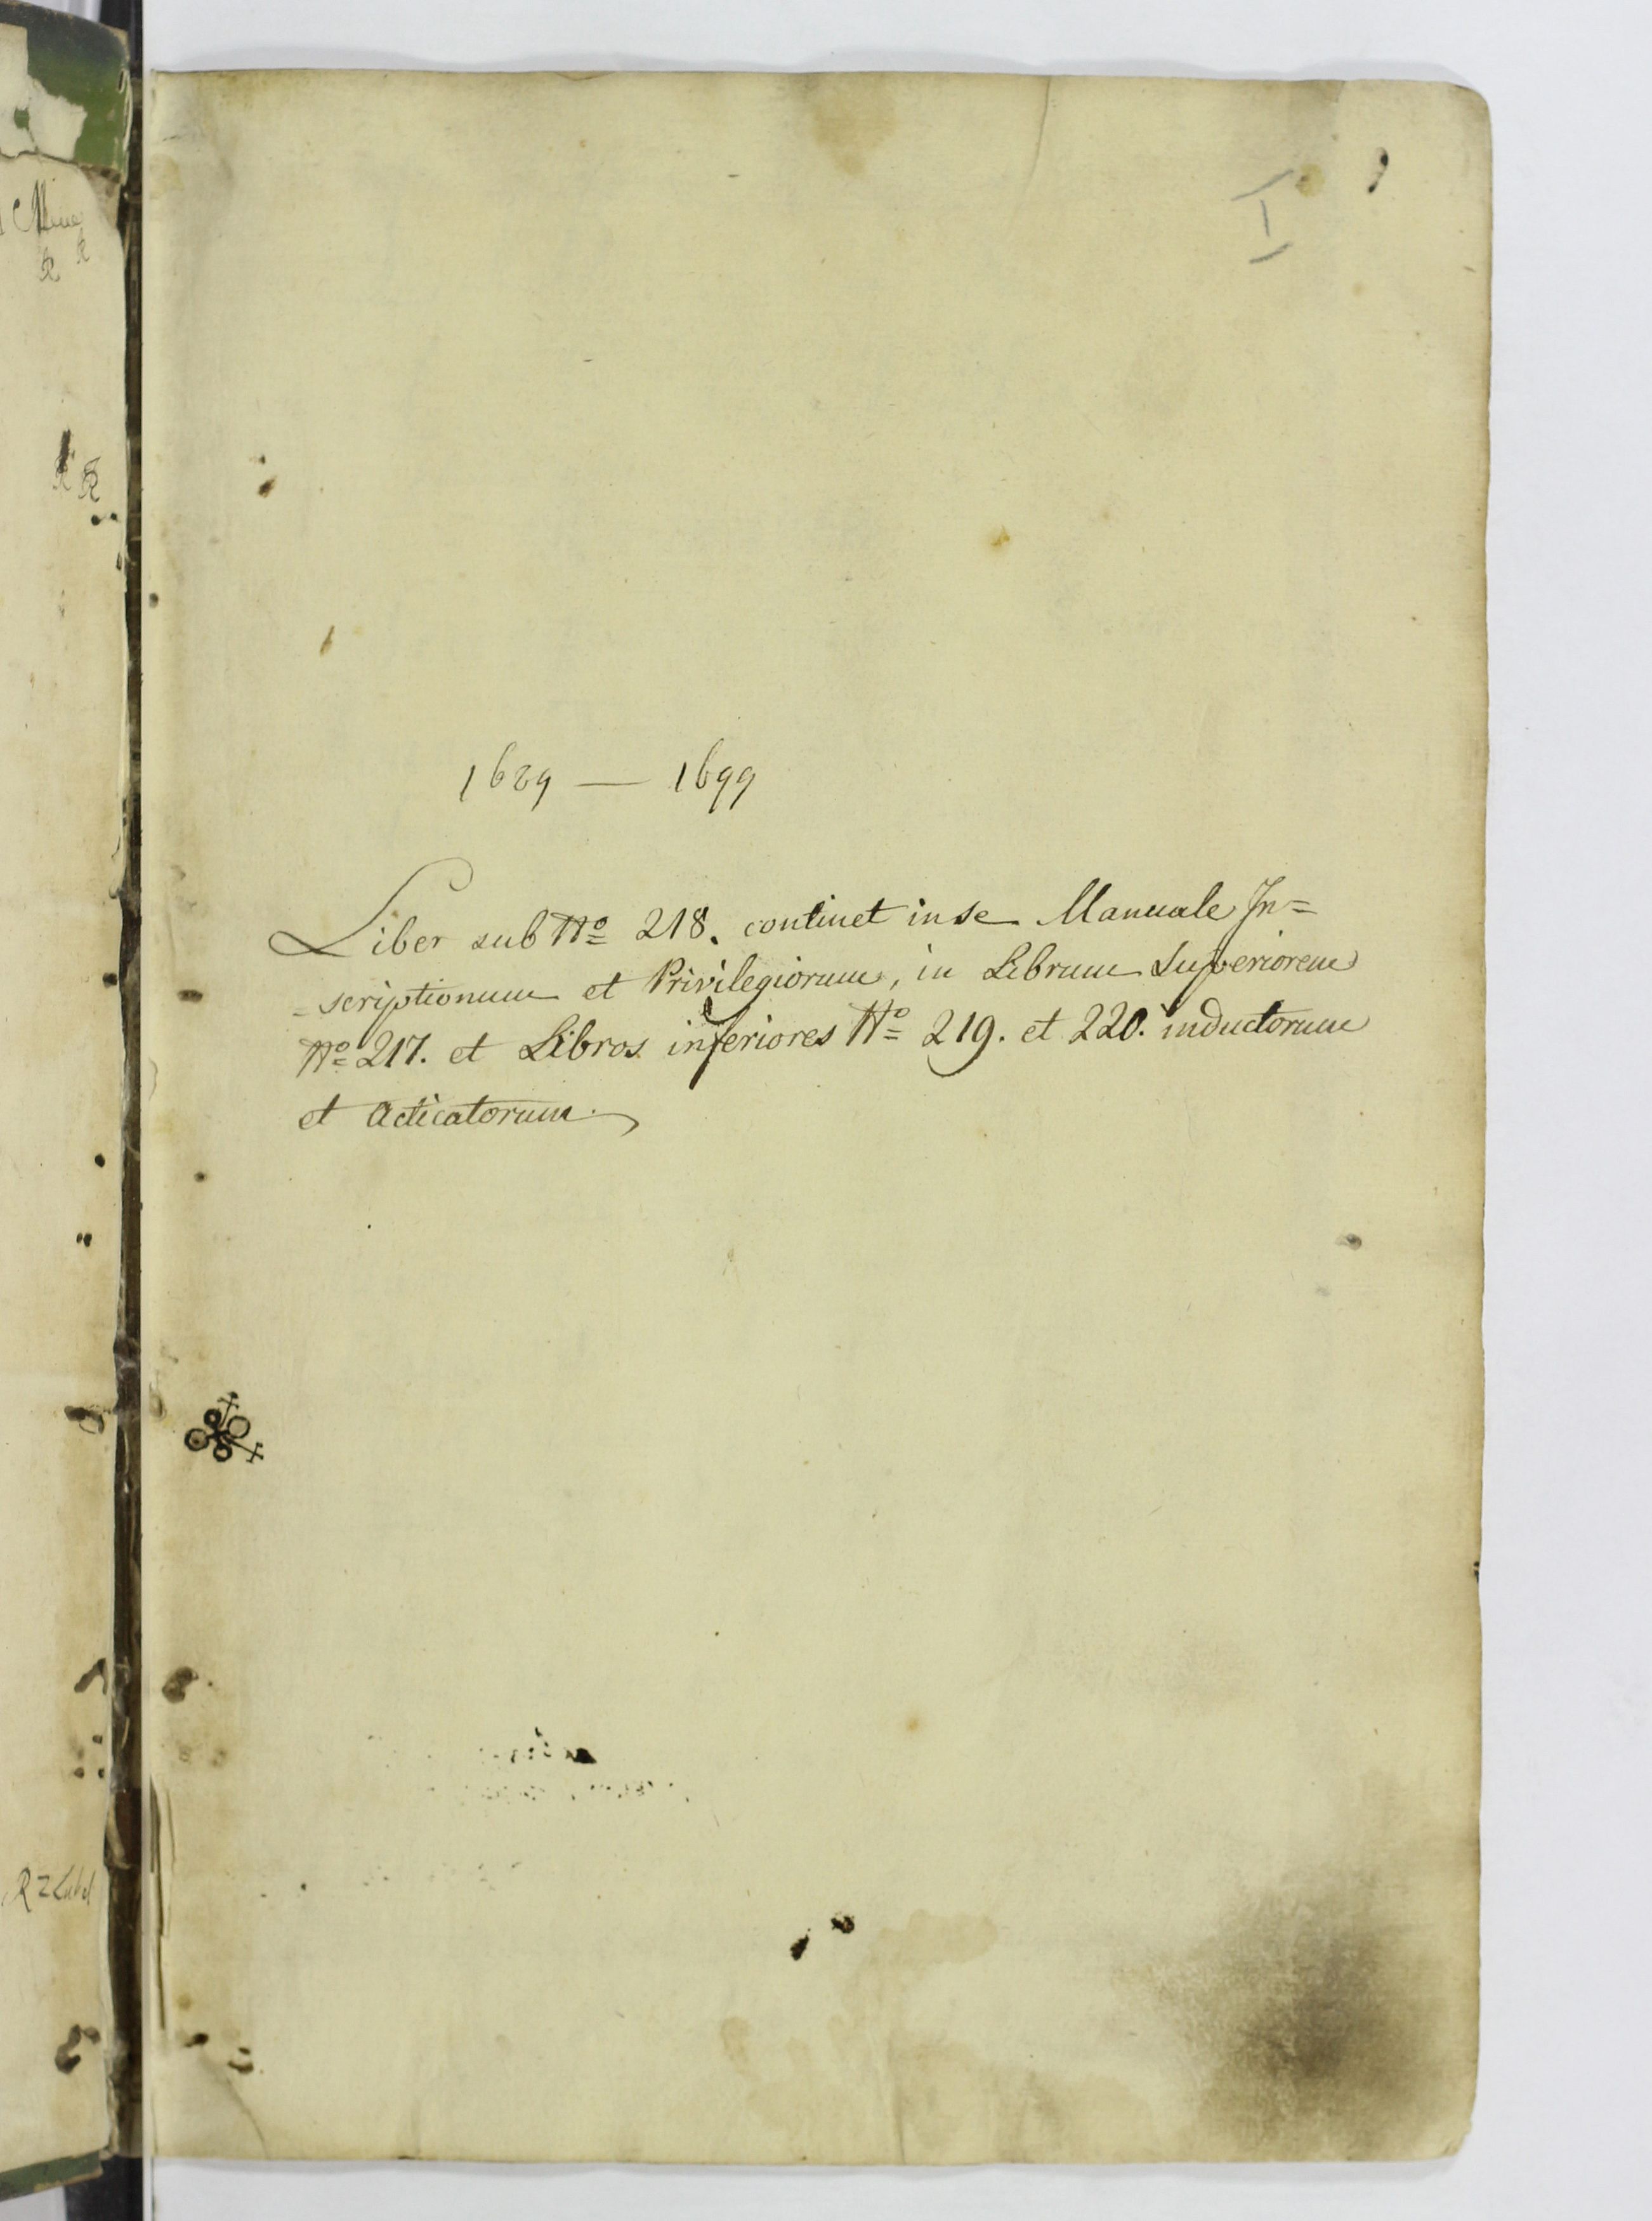 I
1689 — 1699
Liber sub No 218. continet in se Manuale In=
=scriptionum et Privilegiorum, in Librum Superiorem
No 217. et Libros inferiores No 219. et 220. inductorum
et Acticatorum.